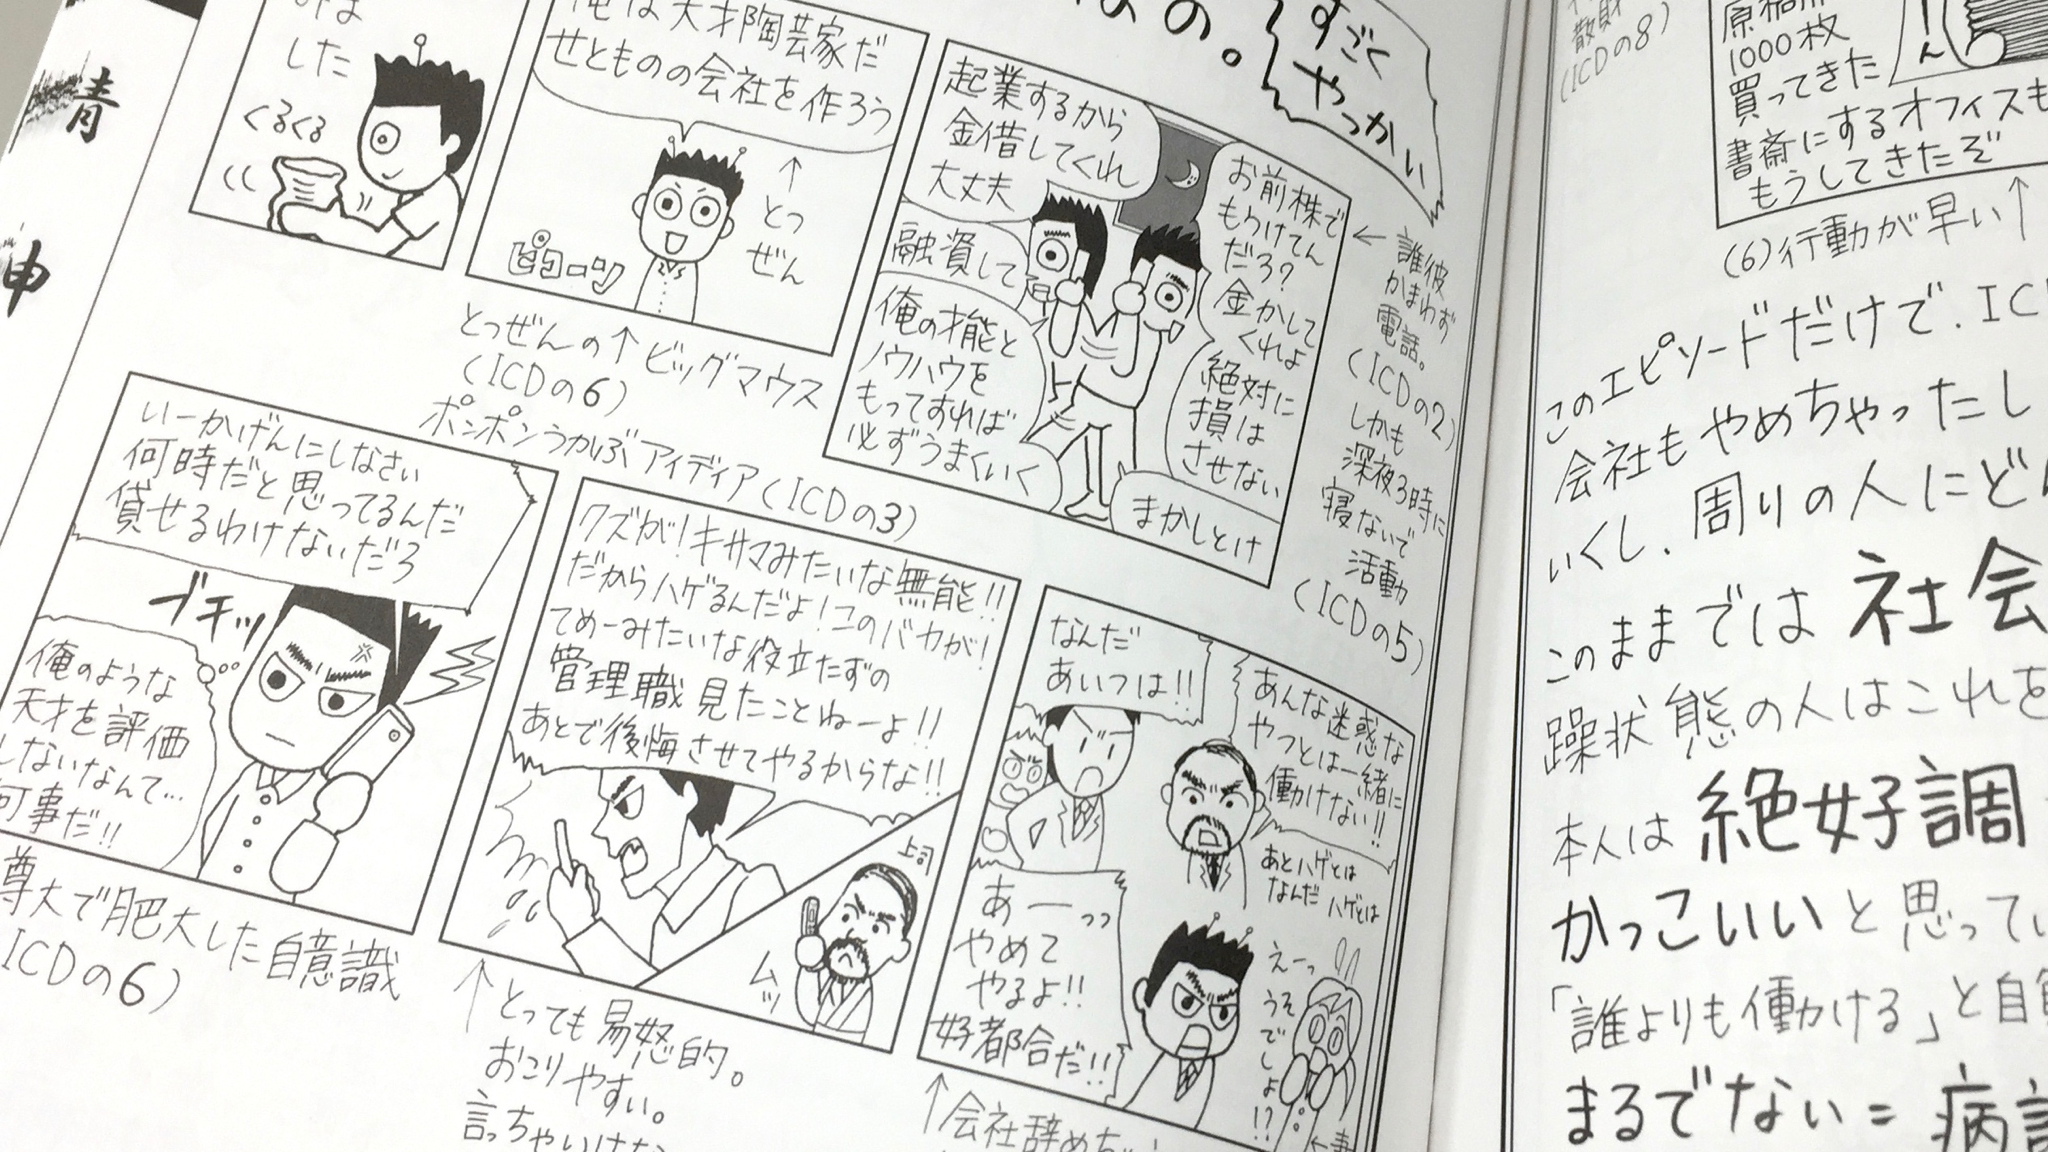 青
申
なの。
すごく
やっかい
した
くるくる
俺は天才陶芸家だ
せとものの会社を作ろう
↑
とつ
ぜん
ピローロッ
とつぜんの↑ビッグマウス
(ICDの6)
ポンポンうかぶアイディア(ICDの3)
起業するから
金借してくれ
大丈夫
融資して
俺の才能と
ノウハウを
もっておれば
必ずうまくいく
お前株で
もうけてん
だろ?
金かして
くれよ
絶対に
損は
させない
まかしとけ
← 誰彼
かまわず
電話。
(ICDの2)
しかも
深夜3時に
寝ないで
活動
(ICDの5)
いーかげんにしなさい
何時だと思ってるんだ
貸せるわけないだろ
ブチッ
俺のような
天才を評価
しないなんて…
何事だ!!
尊大で肥大した自意識
ICDの6)
クズが!キサマみたいな無能!!
だからハゲるんだよ!このバカが!
てめーみたいな役立たずの
管理職見たことねーよ!!
あとで後悔させてやるからな!!
上司
ムッ
↑とっても易怒的。
おこりやすい。
言っちゃいけな
なんだ
あいつは!!
あんな迷惑な
やつとは一緒に
働けない!!
あとハゲとは
なんだ ハゲとは
あーっっ
やめて
やるよ!!
好都合だ!!
えーっ
うそ
でしょ!?
←妻
↑会社辞めち
散財
(ICDの8)
1000枚
買ってきた
書斎にするオフィスも
もうしてきたぞ
(6)行動が早い↑
このエピソードだけで、IC
会社もやめちゃったし
いくし、周りの人にど
このままでは社会
躁状態の人はこれを
本人は絶好調
かっこいいと思ってい
「誰よりも働ける」と自
まるでない=病